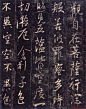 觀自在菩薩行深
般若波羅蜜多時
照見五蘊皆空度一
切苦厄舍利子色